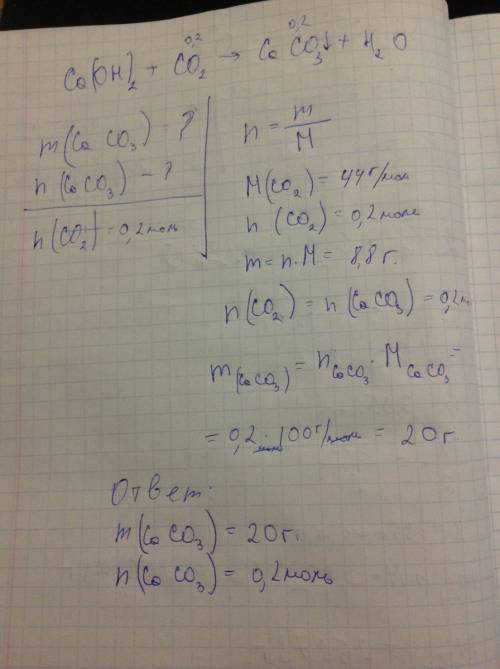 0,2 0,2
Ca(OH)₂ + CO₂ → CaCO₃↓ + H₂O
m(CaCO₃) - ?
n(CaCO₃) - ?
n(CO₂) = 0,2 моль
n = m/M
M(CO₂) = 44 г/мол
n (CO₂) = 0,2 моль
m = n · M = 8,8 г.
n(CO₂) = n(CaCO₃) = 0,2 м
m(CaCO₃) = nCaCO₃ · MCaCO₃ =
= 0,2 моль · 100 г/моль = 20 г
Ответ:
m(CaCO₃) = 20 г.
n(CaCO₃) = 0,2 моль